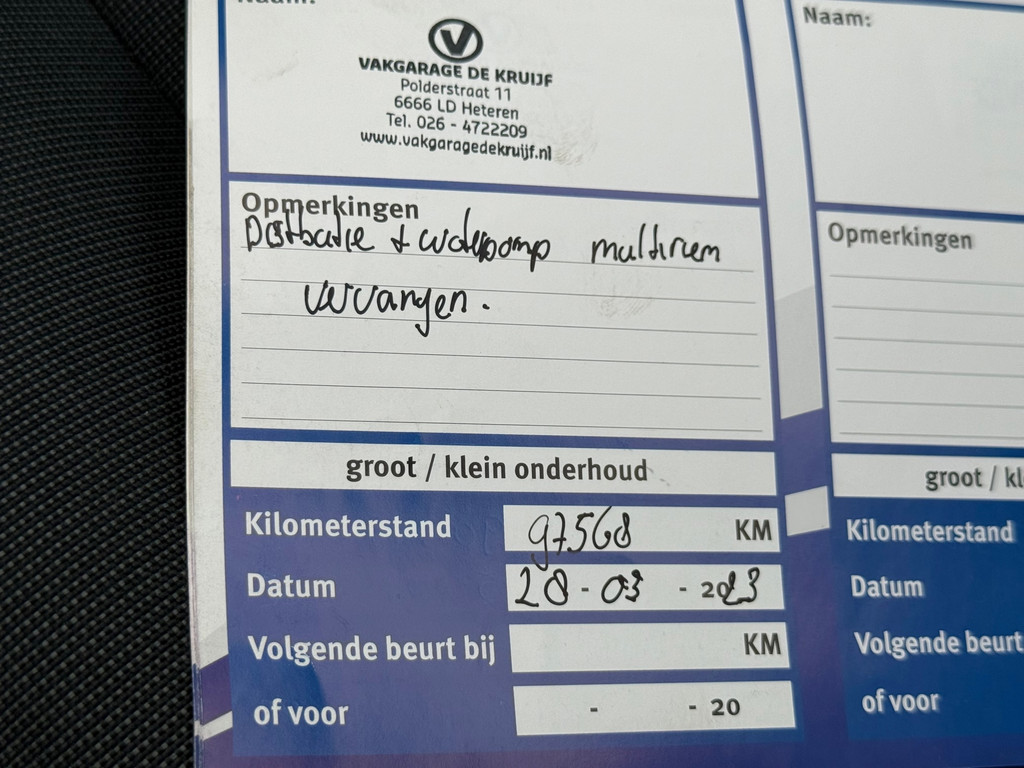 Naam:
VAKGARAGE DE KRUIJF
Polderstraat 11
6666 LD Heteren
Tel. 026 - 4722209
www.vakgaragedekruijf.nl
Opmerkingen
+ waterpomp multiriem
vervangen.
groot / klein onderhoud
Kilometerstand 97568 KM
Datum 28 - 03 - 2023
Volgende beurt bij KM
of voor - - 20
Naam:
Opmerkingen
groot / kl
Kilometerstand
Datum
Volgende beurt
of voor